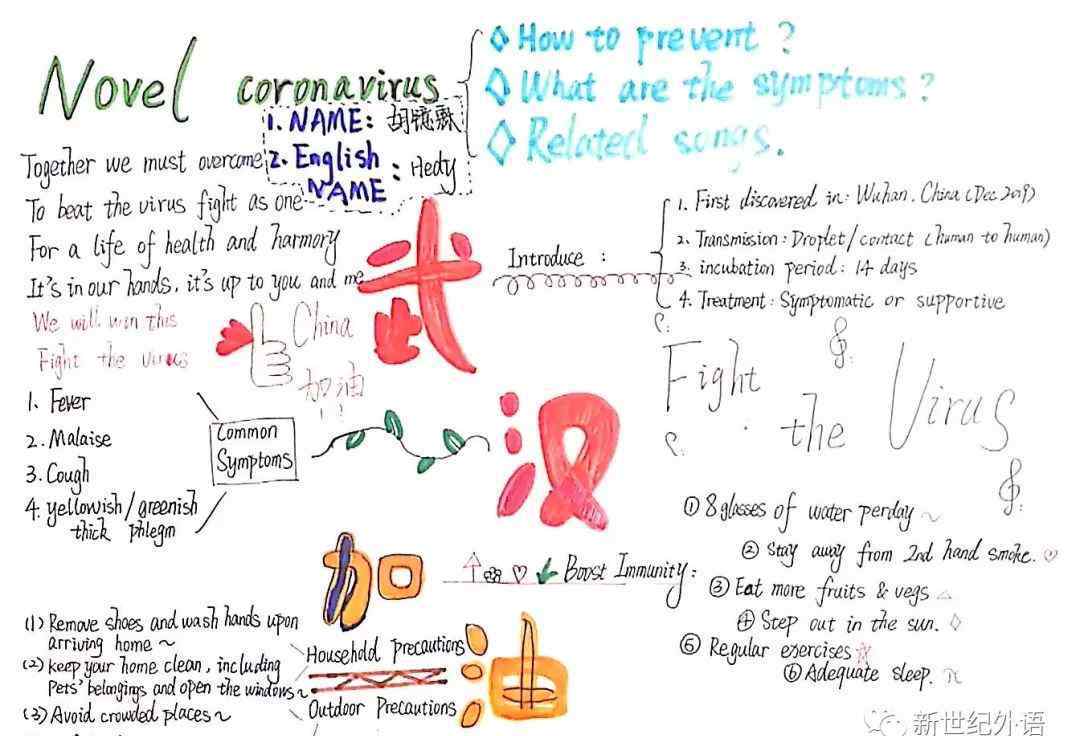 Novel coronavirus
How to prevent?
What are the symptoms?
Related songs.
1. NAME:
2. English NAME: Hedy
Together we must overcome
To beat the virus fight as one
For a life of health and harmory
It's in our hands, it's up to you and me
We will win this
Fight the virus
China
加油
!!
武
汉
加
油
Introduce:
1. First discovered in: Wuhan. China (Dec 2019)
2. Transmission: Droplet/contact (human to human)
3. incubation period: 14 days
4. Treatment: Symptomatic or supportive
Fight
the
Virus
Common
Symptoms
1. Fever
2. Malaise
3. Cough
4. yellowish/greenish
thick phlegm
Boost Immunity:
① 8 glasses of water perday ~
② Stay away from 2nd hand smoke.
③ Eat more fruits & vegs
④ Step out in the sun.
⑤ Regular exercises
⑥ Adequate sleep.
Household precautions
(1) Remove shoes and wash hands upon
arriving home ~
(2) keep your home clean, including
Pets' belongings and open the windows ~
Outdoor Precautions
(3) Avoid crowded places ~
新世纪外语